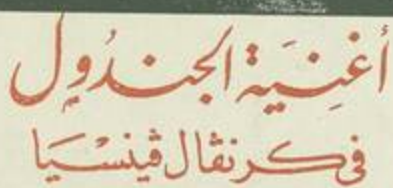 أغنِيَة الجندُول
في كرنڤال ڤينسْيَا